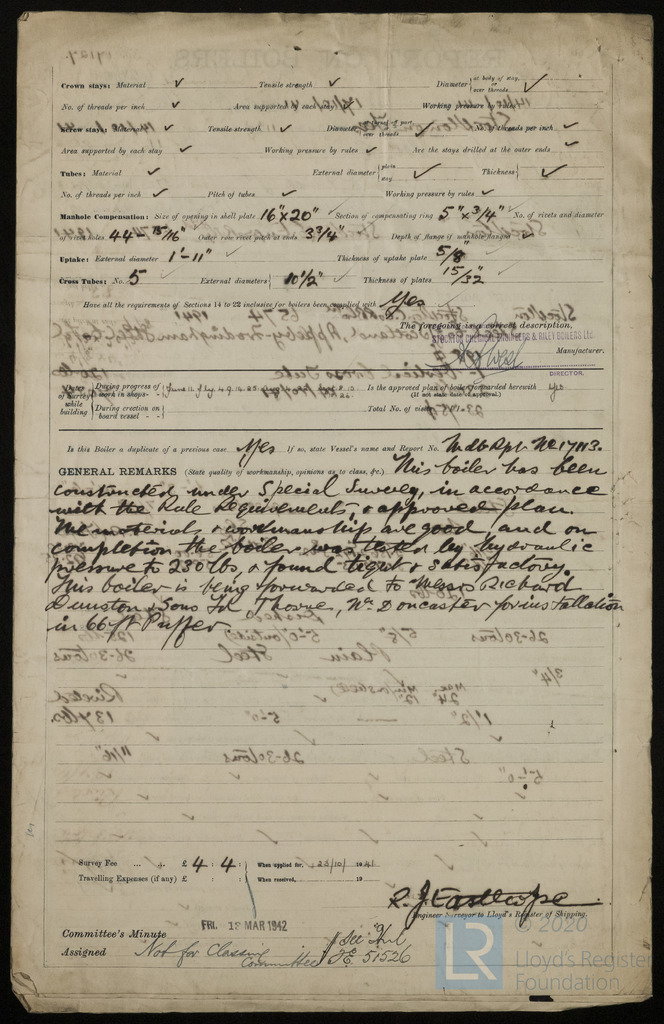 Crown stays: Material ✓ Tensile strength ✓ Diameter { at body of stay, or over threads ✓
No. of threads per inch ✓ Area supported by each stay Working pressure by rules
Screw stays: Material Tensile strength ✓ Diameter No. of threads per inch ✓
Area supported by each stay ✓ Working pressure by rules ✓ Are the stays drilled at the outer ends ✓
Tubes: Material ✓ External diameter { plain stay ✓ Thickness { ✓
No. of threads per inch ✓ Pitch of tubes ✓ Working pressure by rules ✓
Manhole Compensation: Size of opening in shell plate 16"x20" Section of compensating ring 5"x3/4" No. of rivets and diameter
of rivet holes 44-15/16" Outer row rivet pitch at ends 3 3/4" Depth of flange if manhole flanged ✓
Uptake: External diameter 1'-11" Thickness of uptake plate 5/8"
Cross Tubes: No. 5 External diameters { 10 1/2" Thickness of plates 15/32"
Have all the requirements of Sections 14 to 22 inclusive for boilers been complied with Yes
The foregoing is a correct description,
STOCKTON CHEMICAL ENGINEERS & RILEY BOILERS LTD
Manufacturer.
DIRECTOR.
while building { During progress of work in shops - - Is the approved plan of boiler forwarded herewith yes
(If not state date of approval.)
During erection on board vessel - - - Total No. of visits
Is this Boiler a duplicate of a previous case Yes If so, state Vessel's name and Report No. Mdb Rpt No 17113.
GENERAL REMARKS (State quality of workmanship, opinions as to class, &c.) This boiler has been
constructed under Special Survey, in accordance
with the Rule Requirements, & approved plan.
The materials & workmanship are good, and on
completion the boiler was tested by hydraulic
pressure to 230 lbs, & found tight & satisfactory.
This boiler is being forwarded to Messrs Richard
Dunston & Sons Ld Thorne, Nr Doncaster for installation
in 66-ft Puffer.
Survey Fee ... ... £ 4 : 4 : When applied for, 23/10/1941
Travelling Expenses (if any) £ : : When received, 19
R. J. Easthope
Engineer Surveyor to Lloyd's Register of Shipping.
FRI. 13 MAR 1942
Committee's Minute
Assigned Not for Classing Committee See
F.E. 51526
© 2020
LR
Lloyd's Register
Foundation